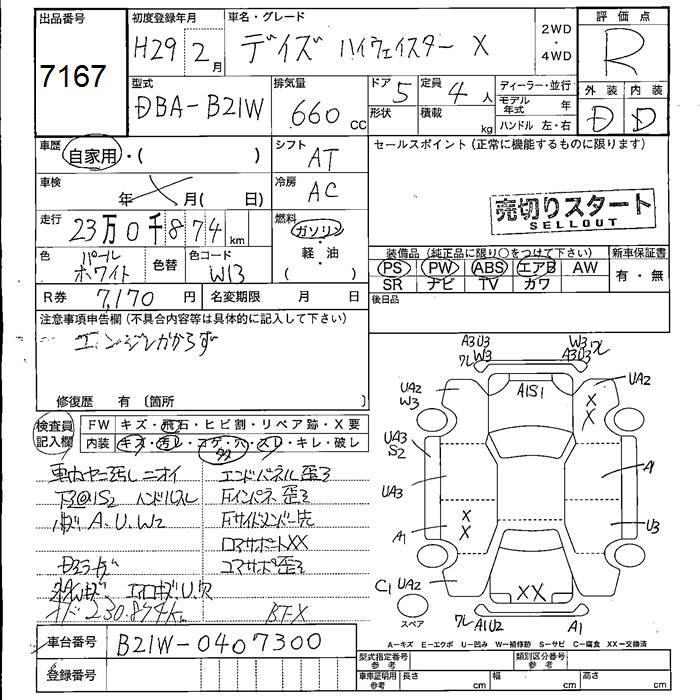 出品番号 初度登録年月 車名・グレード 2WD・4WD 評価点
7167 H29年 2月 デイズ ハイウェイスター X R
型式 排気量 ドア 定員 ディーラー・並行 外装 内装
DBA-B21W 660 cc 5 4人 モデル年式 年 D D
形状 積載 kg ハンドル 左・右
車歴 自家用・( ) シフト AT セールスポイント(正常に機能するものに限ります)
車検 年 月( 日) 冷房 AC
売切りスタート
SELLOUT
走行 23万0千874km 燃料 ガソリン・軽・油( )
色 パールホワイト 色替 色コード W13
装備品(純正品に限り○をつけて下さい) 新車保証書
PS PW ABS エアB AW 有・無
SR ナビ TV カワ
R券 7,170円 名変期限 月 日 後日品
注意事項申告欄(不具合内容等は具体的に記入して下さい)
エンジンかからず
修復歴 有〔箇所 〕
検査員記入欄 FW キズ・飛石・ヒビ割・リペア跡・X要
内装 キズ・汚レ・コゲ・穴・スレ・キレ・破レ
車内ヤニ汚レ ニオイ エンドパネル歪ミ
下回りS2 ハンドルスレ Fインパネ歪ミ
A.U.W2 Fサイドメンバー先
コアサポートXX
コアサポ歪ミ
230.874km
A3U3 W3 W3 A3U3
UA2 W3 A1S1 UA2
X X
UA3 S2
UA3 A1
A1 X X U3
C1 UA2 XX UA2
スペア A1U2 A1
A…キズ E…エクボ U…凹み W…補修跡 S…サビ C…腐食 XX…交換済
車台番号 B21W-0407300
登録番号
型式指定番号 参考 類別区分番号 参考
車庫証明用 参考 長さ cm 幅 cm 高さ cm